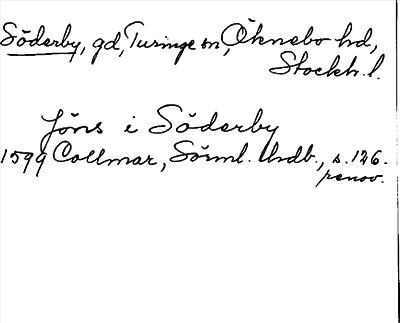 Söderby, gd, Turinge sn, Öknebo hd,
Stockh. l.
Jöns i Söderby
1599 Collmar, Sörml. hdb., s. 126.
renov.